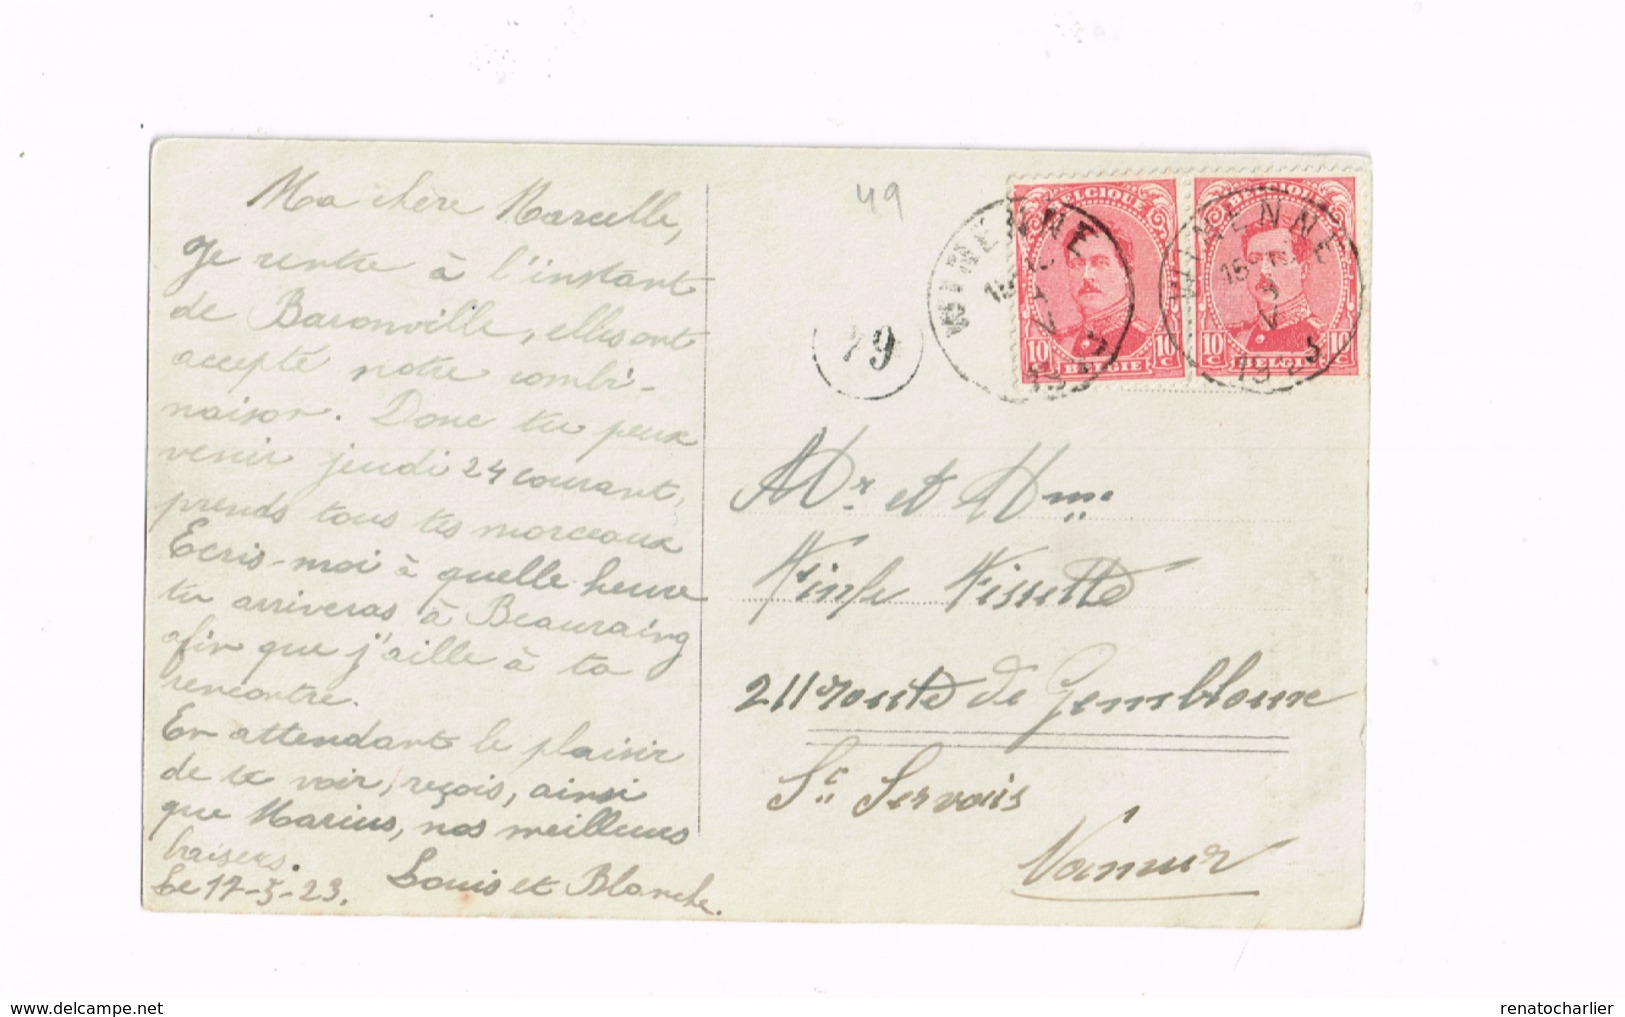 Ma chère Marcelle,
Je rentre à l'instant
de Baronville, elles ont
accepté notre combi-
naison. Donc tu peux
venir jeudi 24 courant,
prends tous tes morceaux
Ecris-moi à quelle heure
tu arriveras à Beauraing
afin que j'aille à ta
rencontre.
En attendant le plaisir
de te voir, reçois, ainsi
que Marius, nos meilleurs
baisers.
Le 17-5-23. Louis et Blanche.
49
79
BELGIQUE
10 c 10 c
BELGIË
WINENNE
BELGIQUE
10 c 10 c
BELGIË
WINENNE
16
V
1923
Mr et Mme
Finfe Fissette
211 route de Gembloux
St Servais
Namur
delcampe.net
renatocharlier